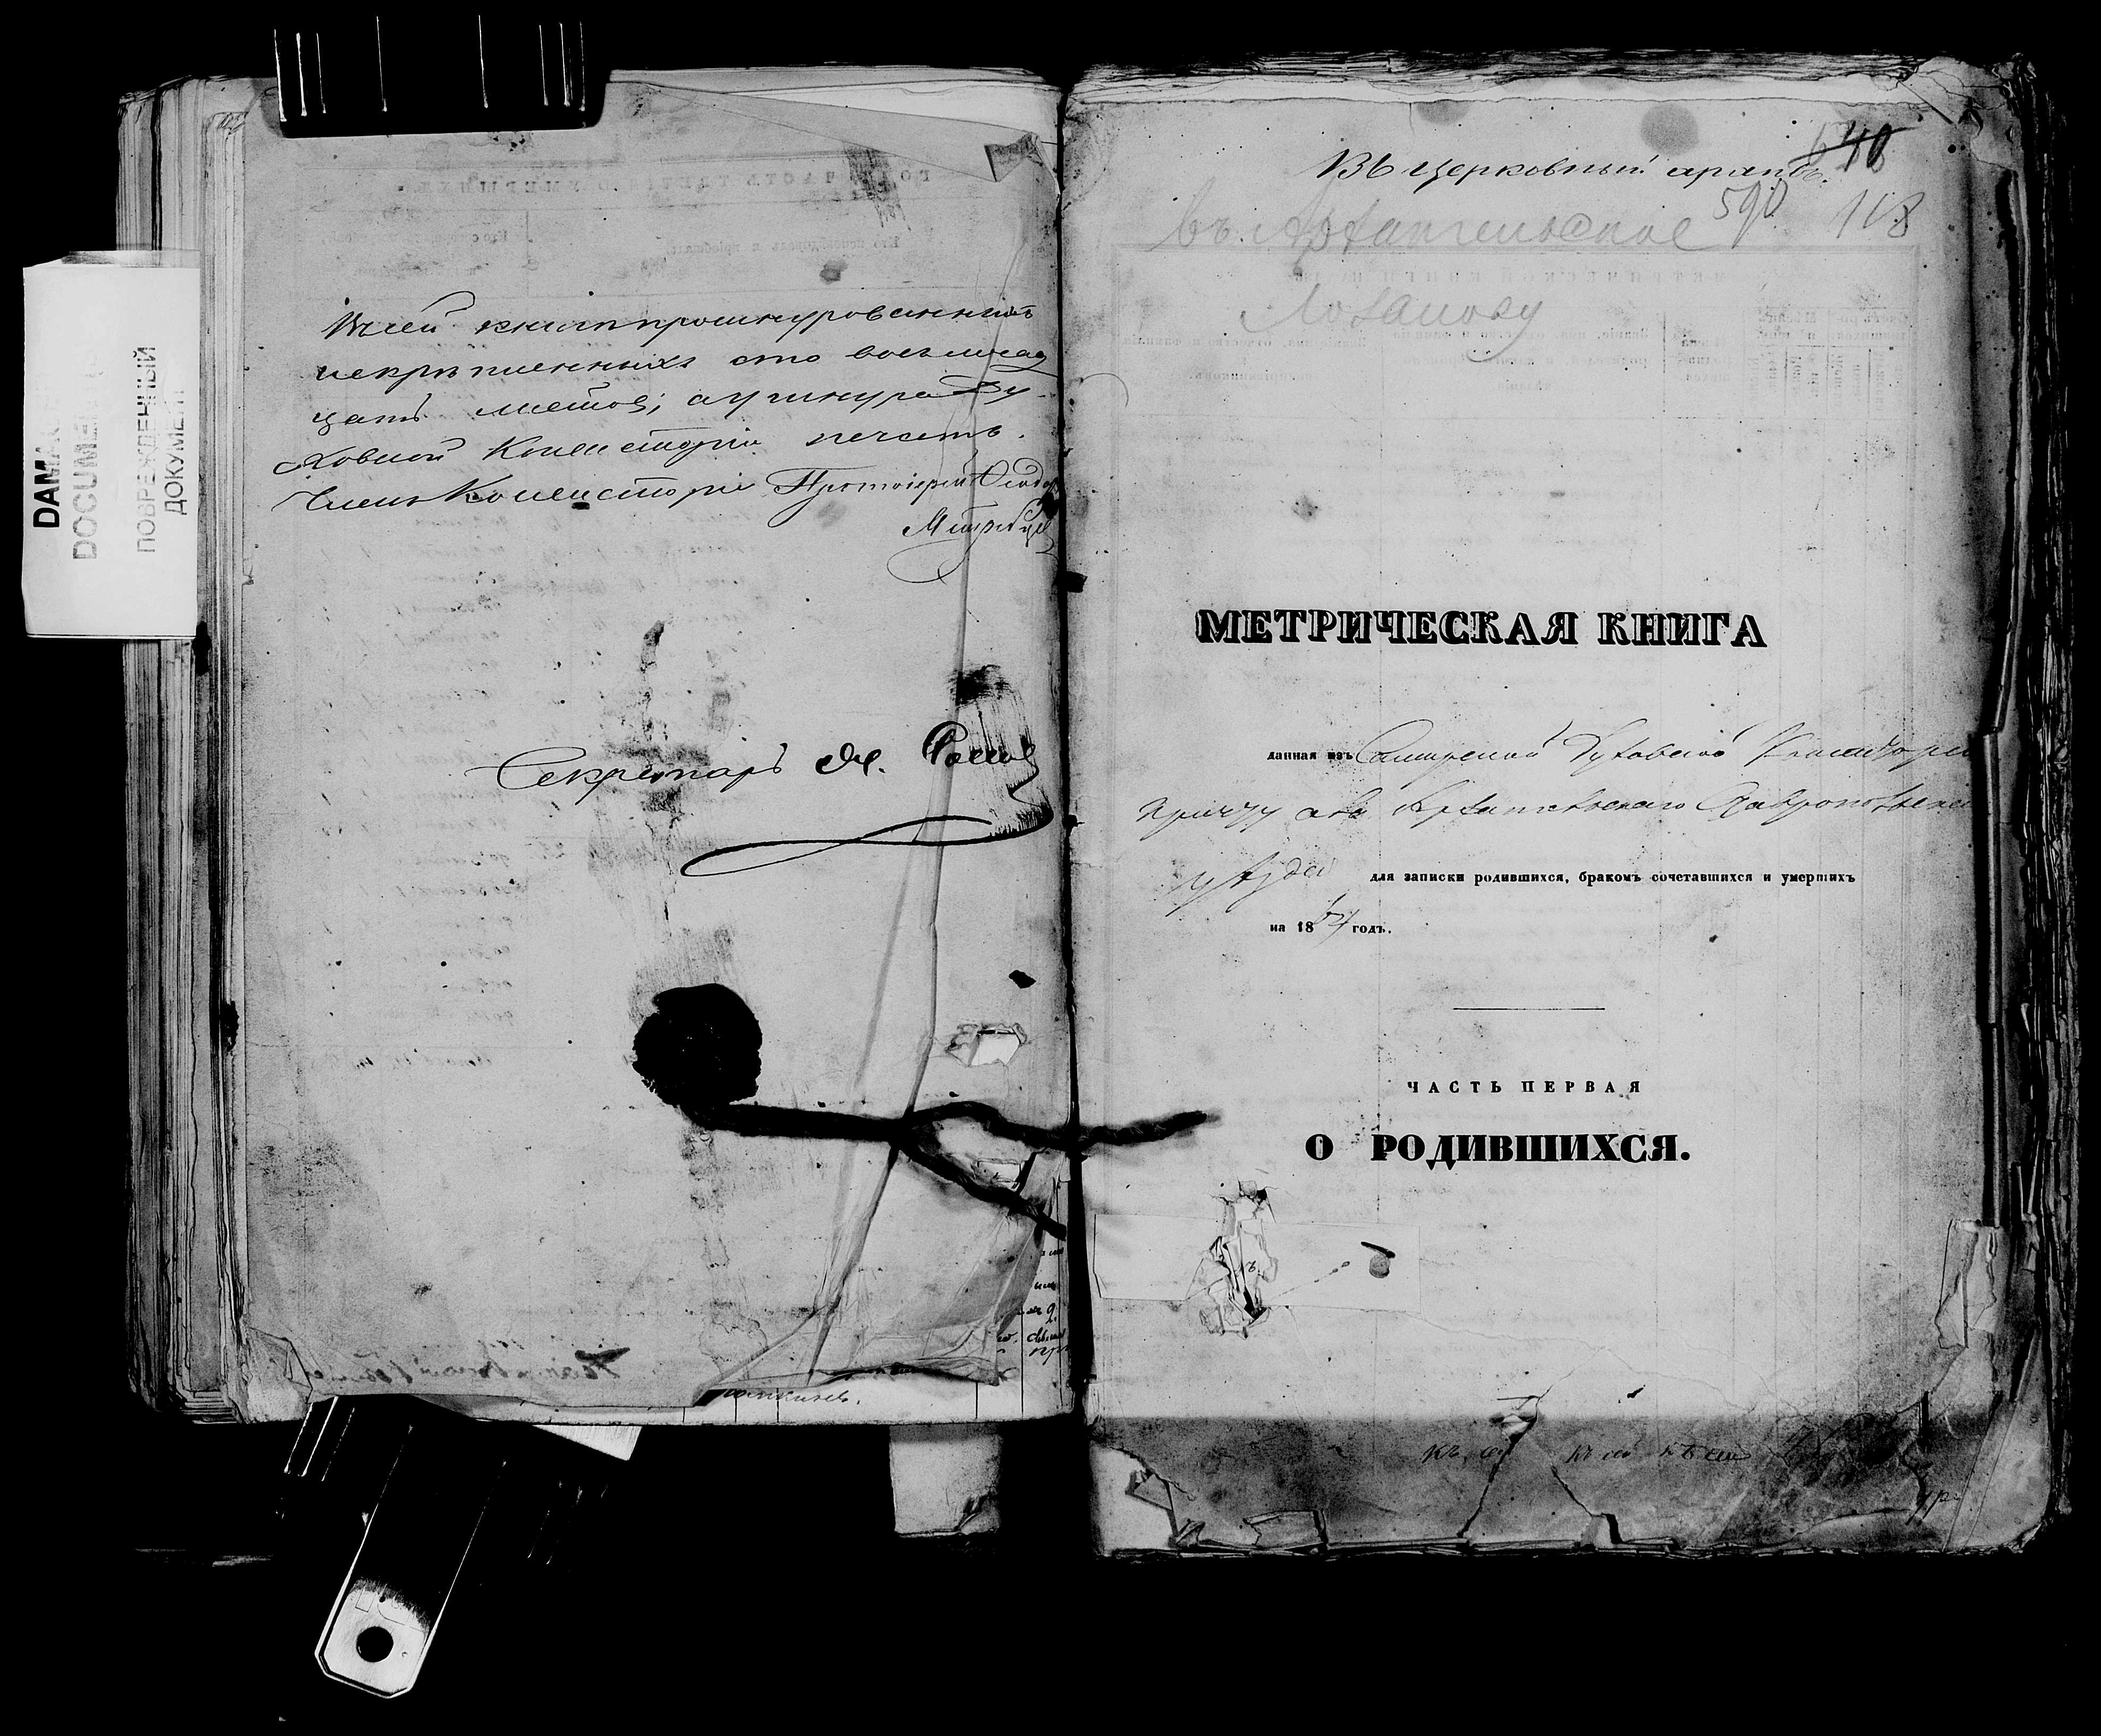 DAMA
DOCUME
ПОВРЕЖДЕННЫЙ
ДОКУМЕНТ
книги прошнурованныхъ
искрѣпленныхъ сто восемнад
цать листов; а у шнура Ду-
ховной Консисторіи печать.
Членъ Консисторіи Протоіерей
Секретарь
Въ церковный архивъ.
40
590 118
въ Архангельское
МЕТРИЧЕСКАЯ КНИГА
данная изъ Самарской Духовной Консисторіи
причту села Архангельскаго Ставропольскаго
уѣзда для записки родившихся, бракомъ сочетавшихся и умершихъ
на 18 годъ.
ЧАСТЬ ПЕРВАЯ
О РОДИВШИХСЯ.
къ сей къ сей